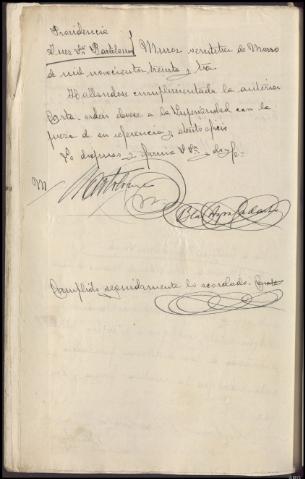 Providencia
Juez Sr. Bartolomé / Muros veintitres de Marzo
de mil novecientos treinta y tres.
Hallandose cumplimentada la anterior
Carta-orden elevese a la Superioridad con la
pieza de su referencia y atento oficio
Lo dispuso y firma S Sª; doy fe.
M Bartolomé
Cumplido seguidamente lo acordado. Doy fe